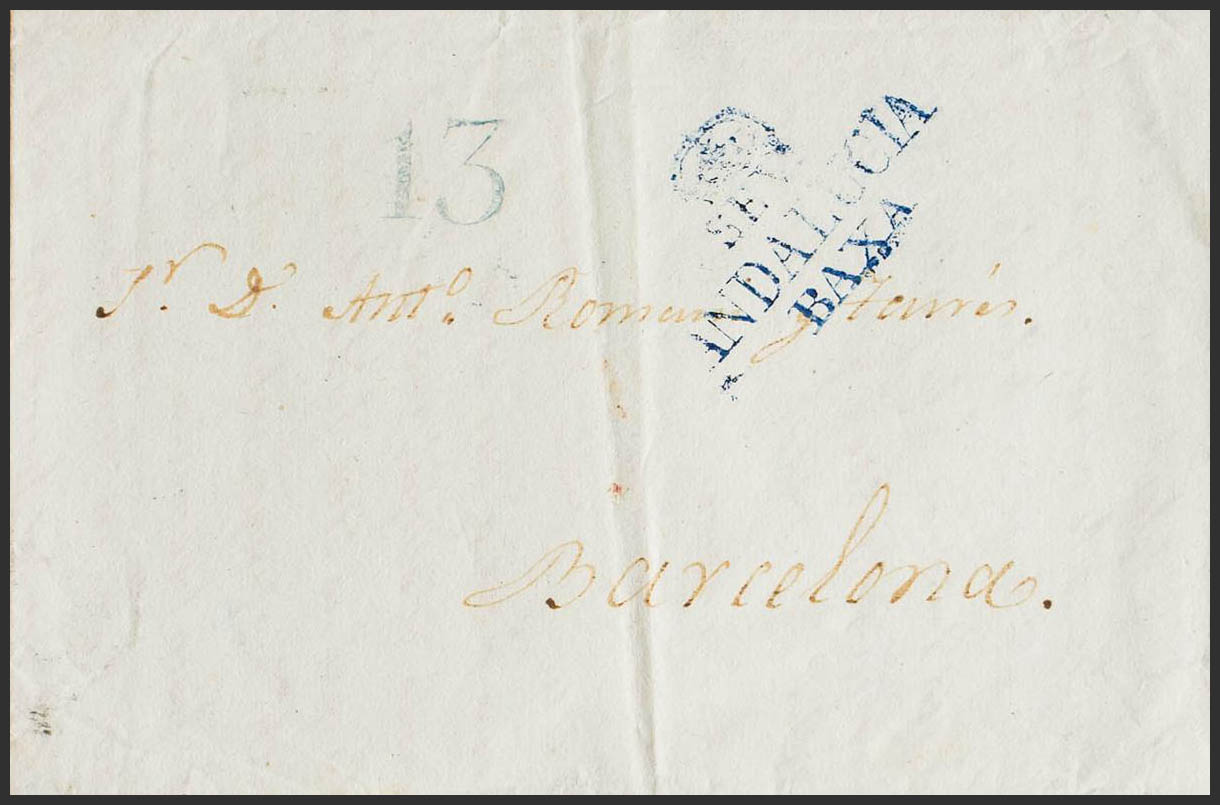 13
SE
ANDALUCIA
BAXA
Sr. D. Antº. Romani y Taurés.
Barcelona.